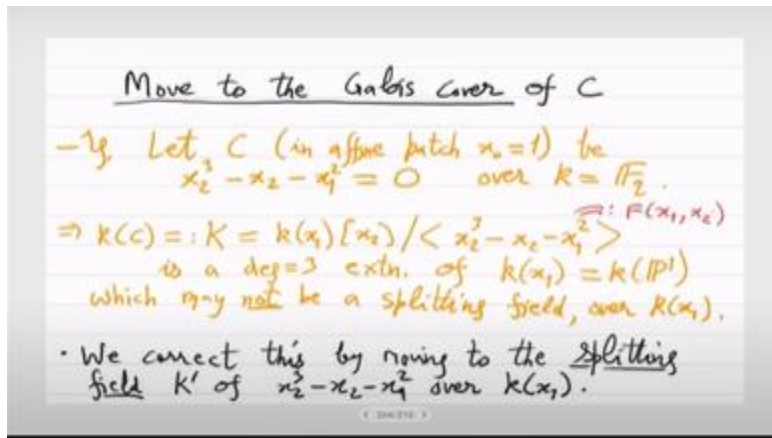 Move to the Galois Cover of C
- Eg. Let C (in affine patch x₀ = 1) be
x₂³ - x₂ - x₁² = 0 over k = 𝔽₂.
=: F(x₁, x₂)
⇒ k(C) =: K = k(x₁)[x₂]/< x₂³ - x₂ - x₁² >
is a deg=3 extn. of k(x₁) = k(ℙ¹)
which may not be a splitting field, over k(x₁).
· We correct this by moving to the splitting
field K' of x₂³ - x₂ - x₁² over k(x₁).